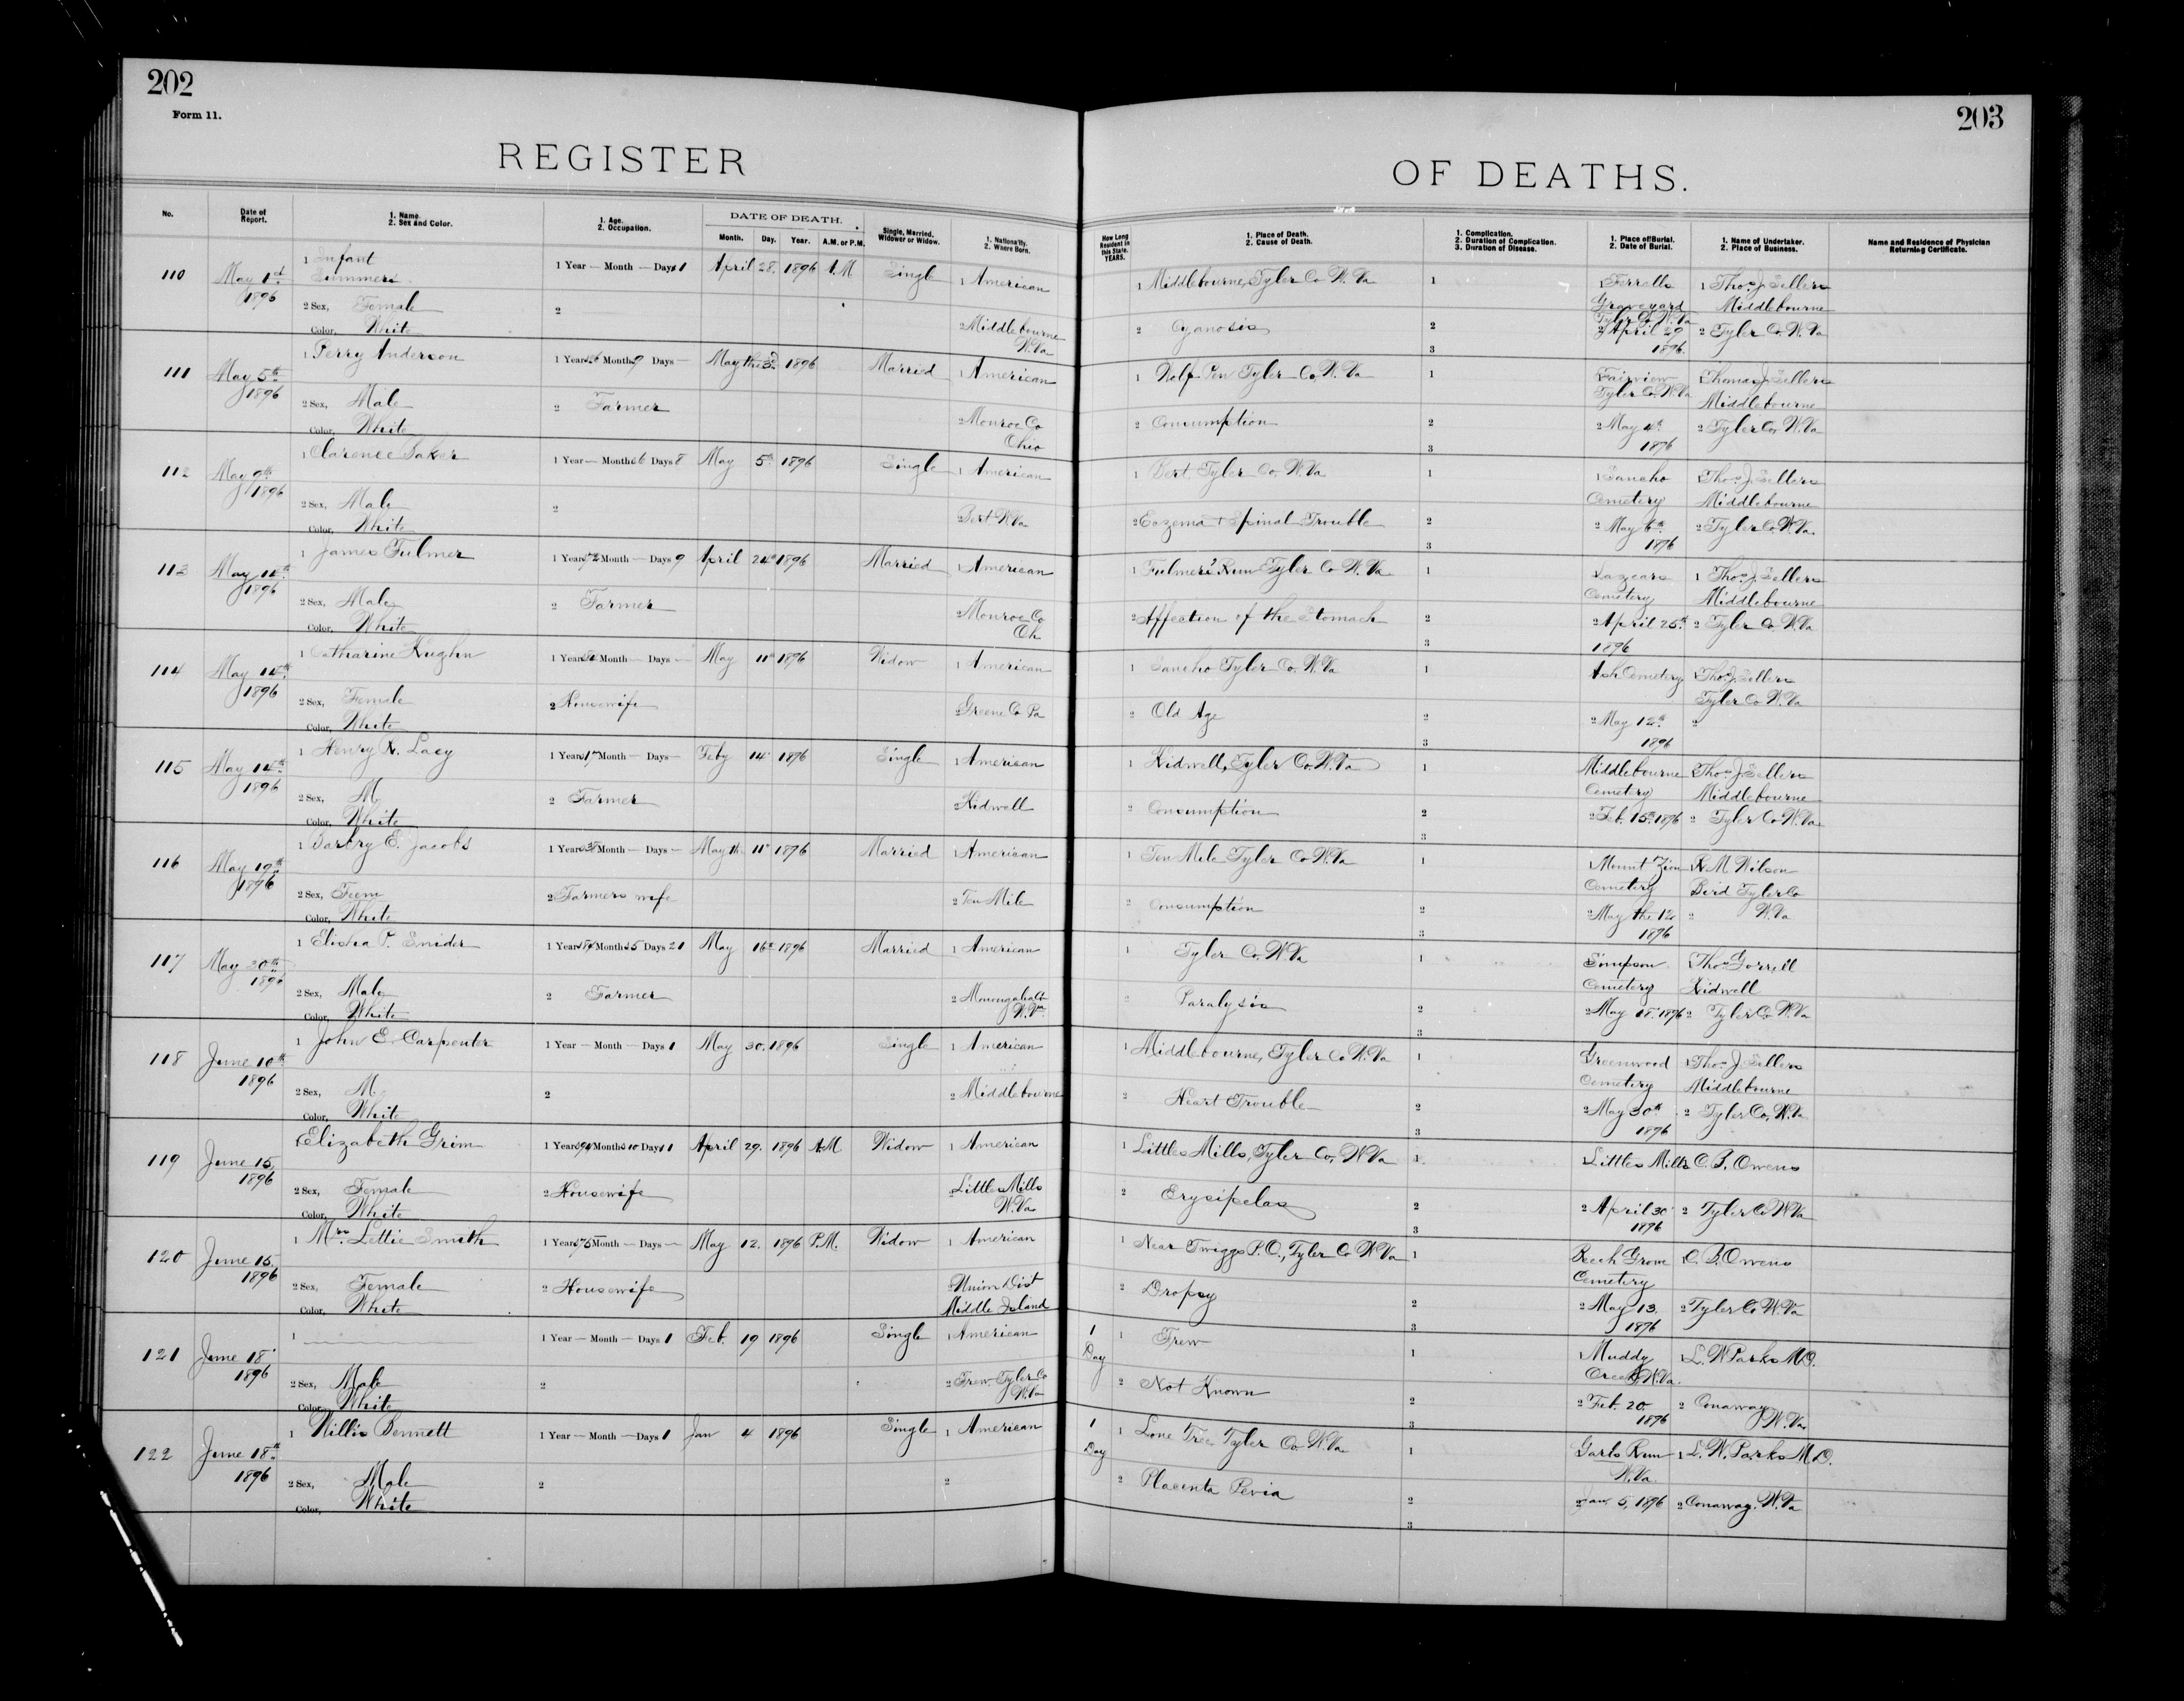 202
Form 11.
REGISTER
No.
Date of Report.
1. Name.
2. Sex and Color.
1. Age.
2. Occupation.
DATE OF DEATH.
Month. Day. Year. A.M. or P.M.
Single, Married, Widower or Widow.
1. Nationality.
2. Where Born.
110 May 1st 1896
1 Infant Summers
2 Sex, Female
Color, White
1 Year — Month — Days 1
2
April 28. 1896 A.M
Single
1 American
2 Middlebourne W.Va
111 May 5th 1896
1 Perry Anderson
2 Sex, Male
Color, White
1 Years 26 Months 9 Days —
2 Farmer
May the 3d 1896
Married
1 American
2 Monroe Co Ohio
112 May 9th 1896
1 Clarence Baker
2 Sex, Male
Color, White
1 Year — Months 6 Days 8
2
May 5th 1896
Single
1 American
2 Bert W.Va
113 May 14th 1896
1 James Fulmer
2 Sex, Male
Color, White
1 Years 72 Month — Days 9
2 Farmer
April 24th 1896
Married
1 American
2 Monroe Co Oh
114 May 14th 1896
1 Catharine Hughn
2 Sex, Female
Color, White
1 Years Month — Days —
2 Housewife
May 11th 1896
Widow
1 American
2 Greene Co Pa
115 May 14th 1896
1 Henry N. Lacy
2 Sex, M
Color, White
1 Years 17 Month — Days —
2 Farmer
Feby 14th 1896
Single
1 American
2 Kidwell
116 May 19th 1896
1 Barbry E. Jacobs
2 Sex, Feem
Color, White
1 Years 37 Month — Days —
2 Farmers wife
May th 11th 1896
Married
1 American
2 Ten Mile
117 May 30th 1896
1 Elisha P. Snider
2 Sex, Male
Color, White
1 Years Months 5 Days 21
2 Farmer
May 16th 1896
Married
1 American
2 Monongahalt W.Va
118 June 10th 1896
1 John E. Carpenter
2 Sex, M
Color, White
1 Year — Month — Days 1
2
May 30. 1896
Single
1 American
2 Middlebourne
119 June 15. 1896
1 Elizabeth Grim
2 Sex, Female
Color, White
1 Years 94 Months 10 Days 1
2 Housewife
April 29. 1896 A.M
Widow
1 American
2 Little Mills W.Va
120 June 15. 1896
1 Mrs. Lettie Smith
2 Sex, Female
Color, White
1 Years 75 Month — Days —
2 Housewife
May 12. 1896 P.M.
Widow
1 American
2 Union Dist Middle Island
121 June 18th 1896
1 —
2 Sex, Male
Color, White
1 Year — Month — Days 1
2
Feb. 19 1896
Single
1 American
2 Frew Tyler Co W.Va
122 June 18th 1896
1 Willis Bennett
2 Sex, Male
Color, White
1 Year — Month — Days 1
2
Jan 4 1896
Single
1 American
2
203
OF DEATHS.
How Long Resident in this State. YEARS.
1. Place of Death.
2. Cause of Death.
1. Complication.
2. Duration of Complication.
3. Duration of Disease.
1. Place of Burial.
2. Date of Burial.
1. Name of Undertaker.
2. Place of Business.
Name and Residence of Physician Returning Certificate.
1 Middlebourne, Tyler Co W. Va
2 Cyanosis
1
2
3
1 Ferrells Graveyard Tyler Co W.Va
2 April 29 1896.
1 Thos. J. Sellers Middlebourne
2 Tyler Co. W. Va
1 Wolf Pen Tyler Co, W. Va
2 Consumption
1
2
3
1 Fairview Tyler Co. W.Va
2 May 4th 1896
1 Thomas J. Sellers Middlebourne
2 Tyler Co, W.Va
1 Bert Tyler Co. W.Va
2 Eczema + Spinal Trouble
1
2
3
1 Sancho Cemetery
2 May 6th 1896
1 Thos. J. Sellers Middlebourne
2 Tyler Co. W.Va
1 Fulmers Run Tyler Co W. Va
2 Affection of the Stomach
1
2
3
1 Lazears Cemetery
2 April 25th 1896
1 Thos. J. Sellers Middlebourne
2 Tyler Co, W.Va
1 Sancho Tyler Co. W.Va
2 Old Age
1
2
3
1 Ash Cemetery
2 May 12th 1896
1 Thos. J. Sellers Tyler Co W.Va
2
1 Kidwell, Tyler Co. W.Va
2 Consumption
1
2
3
Middlebourne Cemetery
2 Feb. 15th 1896
1 Thos. J Sellers Middlebourne
2 Tyler Co W.Va
1 Ten Mile Tyler Co W.Va
2 Consumption
1
2
3
1 Mount Zion Cemetery
2 May the 12 1896
1 M Wilson Bird Tyler Co
2 W.Va
1 Tyler Co. W.Va
2 Paralysis
1
2
3
Simpson Cemetery
2 May 18th 1896
1 Thos Gorrell Kidwell
2 Tyler Co W.Va
1 Middlebourne, Tyler Co W.Va
2 Heart Trouble
1
2
3
1 Greenwood Cemetery
2 May 30th 1896
1 Thos. J. Sellers Middlebourne
2 Tyler Co, W.Va
1 Littles Mills, Tyler Co, W.Va
2 Erysipelas
1
2
3
1 Littles Mills
2 April 30 1896
C. B. Owens
2 Tyler Co W.Va
1 Near Twiggs P.O., Tyler Co W.Va
2 Dropsy
1
2
3
Beech Grove Cemetery
2 May 13. 1896
C. B. Owens
2 Tyler Co W.Va
1 Day
1 Frew
2 Not Known
1
2
3
1 Muddy Creek W.Va.
2 Feb. 20 1896
1 L. W Parks M.D.
2 Conaway W.Va
1 Day
1 Lone Tree Tyler Co. W.Va
2 Placenta Pevia
1
2
3
Garls Run W.Va.
2 Jan. 5, 1896
1 L. W. Parks M.D.
2 Conaway. W.Va